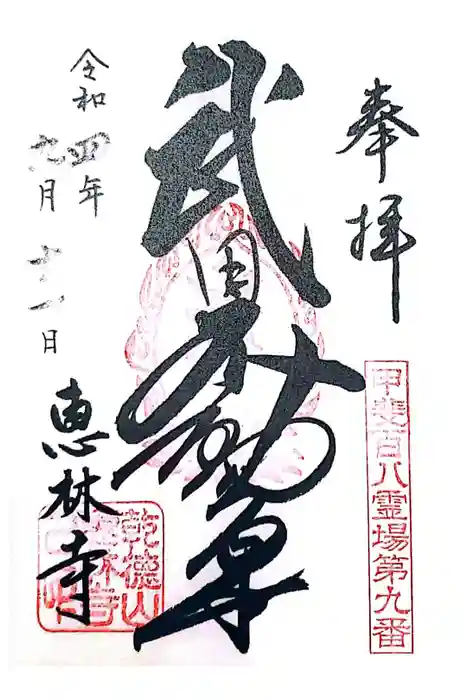 奉拝
甲斐百八霊場第九番
武田不動尊
令和四年
九月十二日
恵林寺
乾徳山